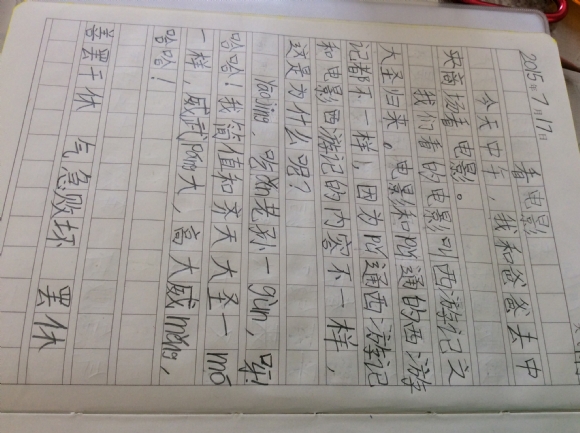 2015年7月17日
看电影
今天中午，我和爸爸去中
央商场看电影。
我们看的电影叫西游记之
大圣归来。电影和普通的西游
记都不一样，因为普通西游记
和电影西游记的内容不一样，
这是为什么呢？
Yaojing，吃俺老孙一gùn，
哈哈！我简值和齐天大圣一mó
一样，威武páng大，高大威měng，
哈哈！
善罢干休 气急败坏 罢休